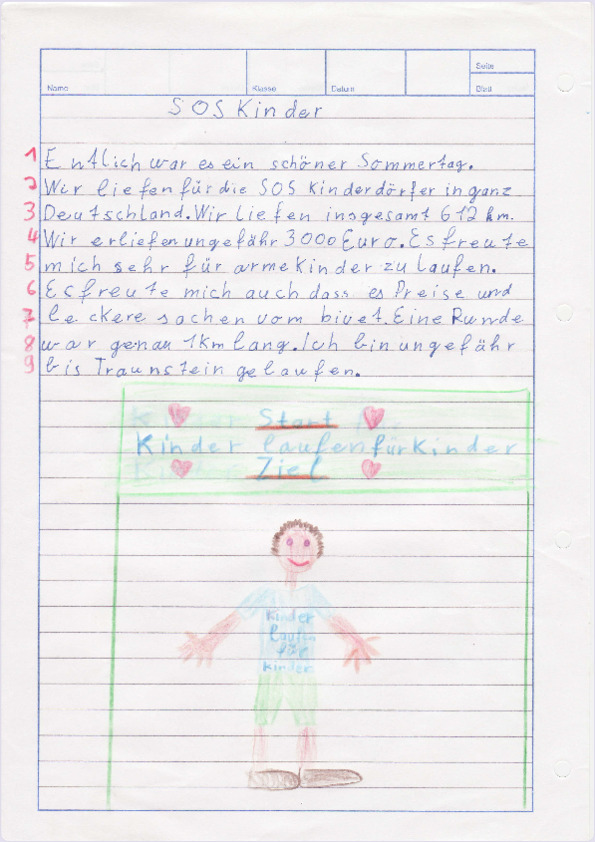 Seite
Name Klasse Datum Blatt
SOS Kinder
1 Entlich war es ein schöner Sommertag.
2 Wir liefen für die SOS Kinderdörfer in ganz
3 Deutschland. Wir liefen insgesamt 612 km.
4 Wir erliefen ungefähr 3000 Euro. Es freute
5 mich sehr für arme Kinder zu laufen.
6 Es freute mich auch dass es Preise und
7 leckere sachen vom bivet. Eine Runde
8 war genau 1Km lang. Ich bin ungefähr
9 bis Traunstein gelaufen.
Start
Kinder laufen für Kinder
Ziel
Kinder
laufen
für
Kinder